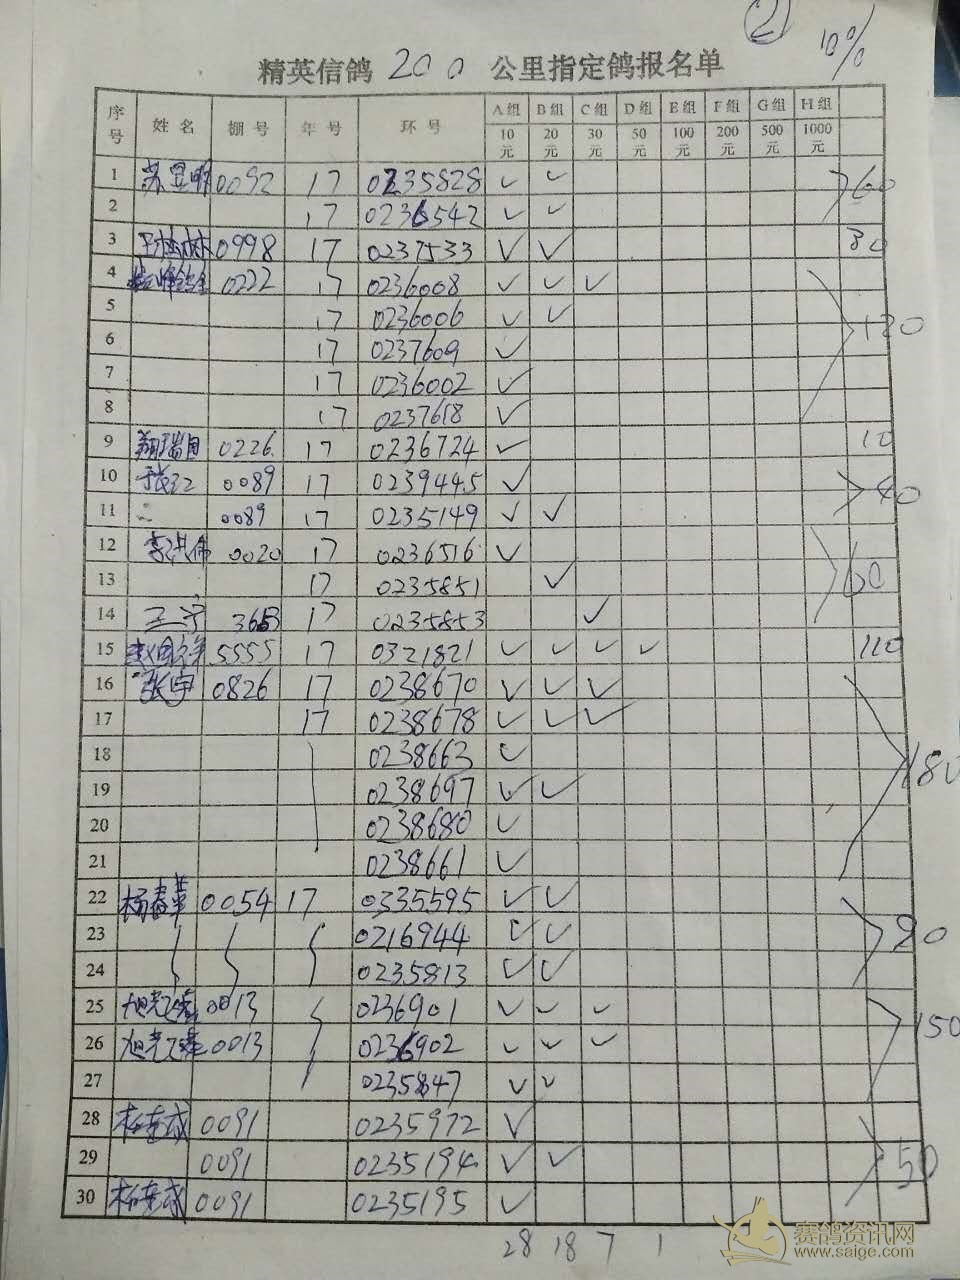 ②
10%
精英信鸽 200 公里指定鸽报名单
序号 姓名 棚号 年号 环号 A组 B组 C组 D组 E组 F组 G组 H组
10元 20元 30元 50元 100元 200元 500元 1000元
1 0092 17 0235828 ✓ ✓ 60
2 17 0236542 ✓ ✓
3 0998 17 0237533 ✓ ✓ 30
4 0222 17 0236008 ✓ ✓ ✓
5 17 0236006 ✓ ✓ 120
6 17 0237609 ✓
7 17 0236002 ✓
8 17 0237618 ✓
9 0226 17 0236724 ✓ 10
10 0089 17 0239445 ✓ 40
11 0089 17 0235149 ✓ ✓
12 李洪伟 0020 17 0236516 ✓
13 17 0235851 ✓ 60
14 王宁 17 0235853 ✓
15 5555 17 0321821 ✓ ✓ ✓ ✓ 110
16 张宇 0826 17 0238670 ✓ ✓ ✓
17 17 0238678 ✓ ✓ ✓
18 0238663 ✓ 180
19 0238697 ✓ ✓
20 0238680 ✓
21 0238661 ✓
22 杨春华 0054 17 0335595 ✓ ✓
23 0216944 ✓ ✓ 90
24 0235813 ✓ ✓
25 0013 0236901 ✓ ✓ ✓ 150
26 0013 0236902 ✓ ✓ ✓
27 0235847 ✓ ✓
28 0091 0235972 ✓
29 0091 0235194 ✓ ✓ 50
30 0091 0235195 ✓
28 18 7 1
赛鸽资讯网
www.saige.com